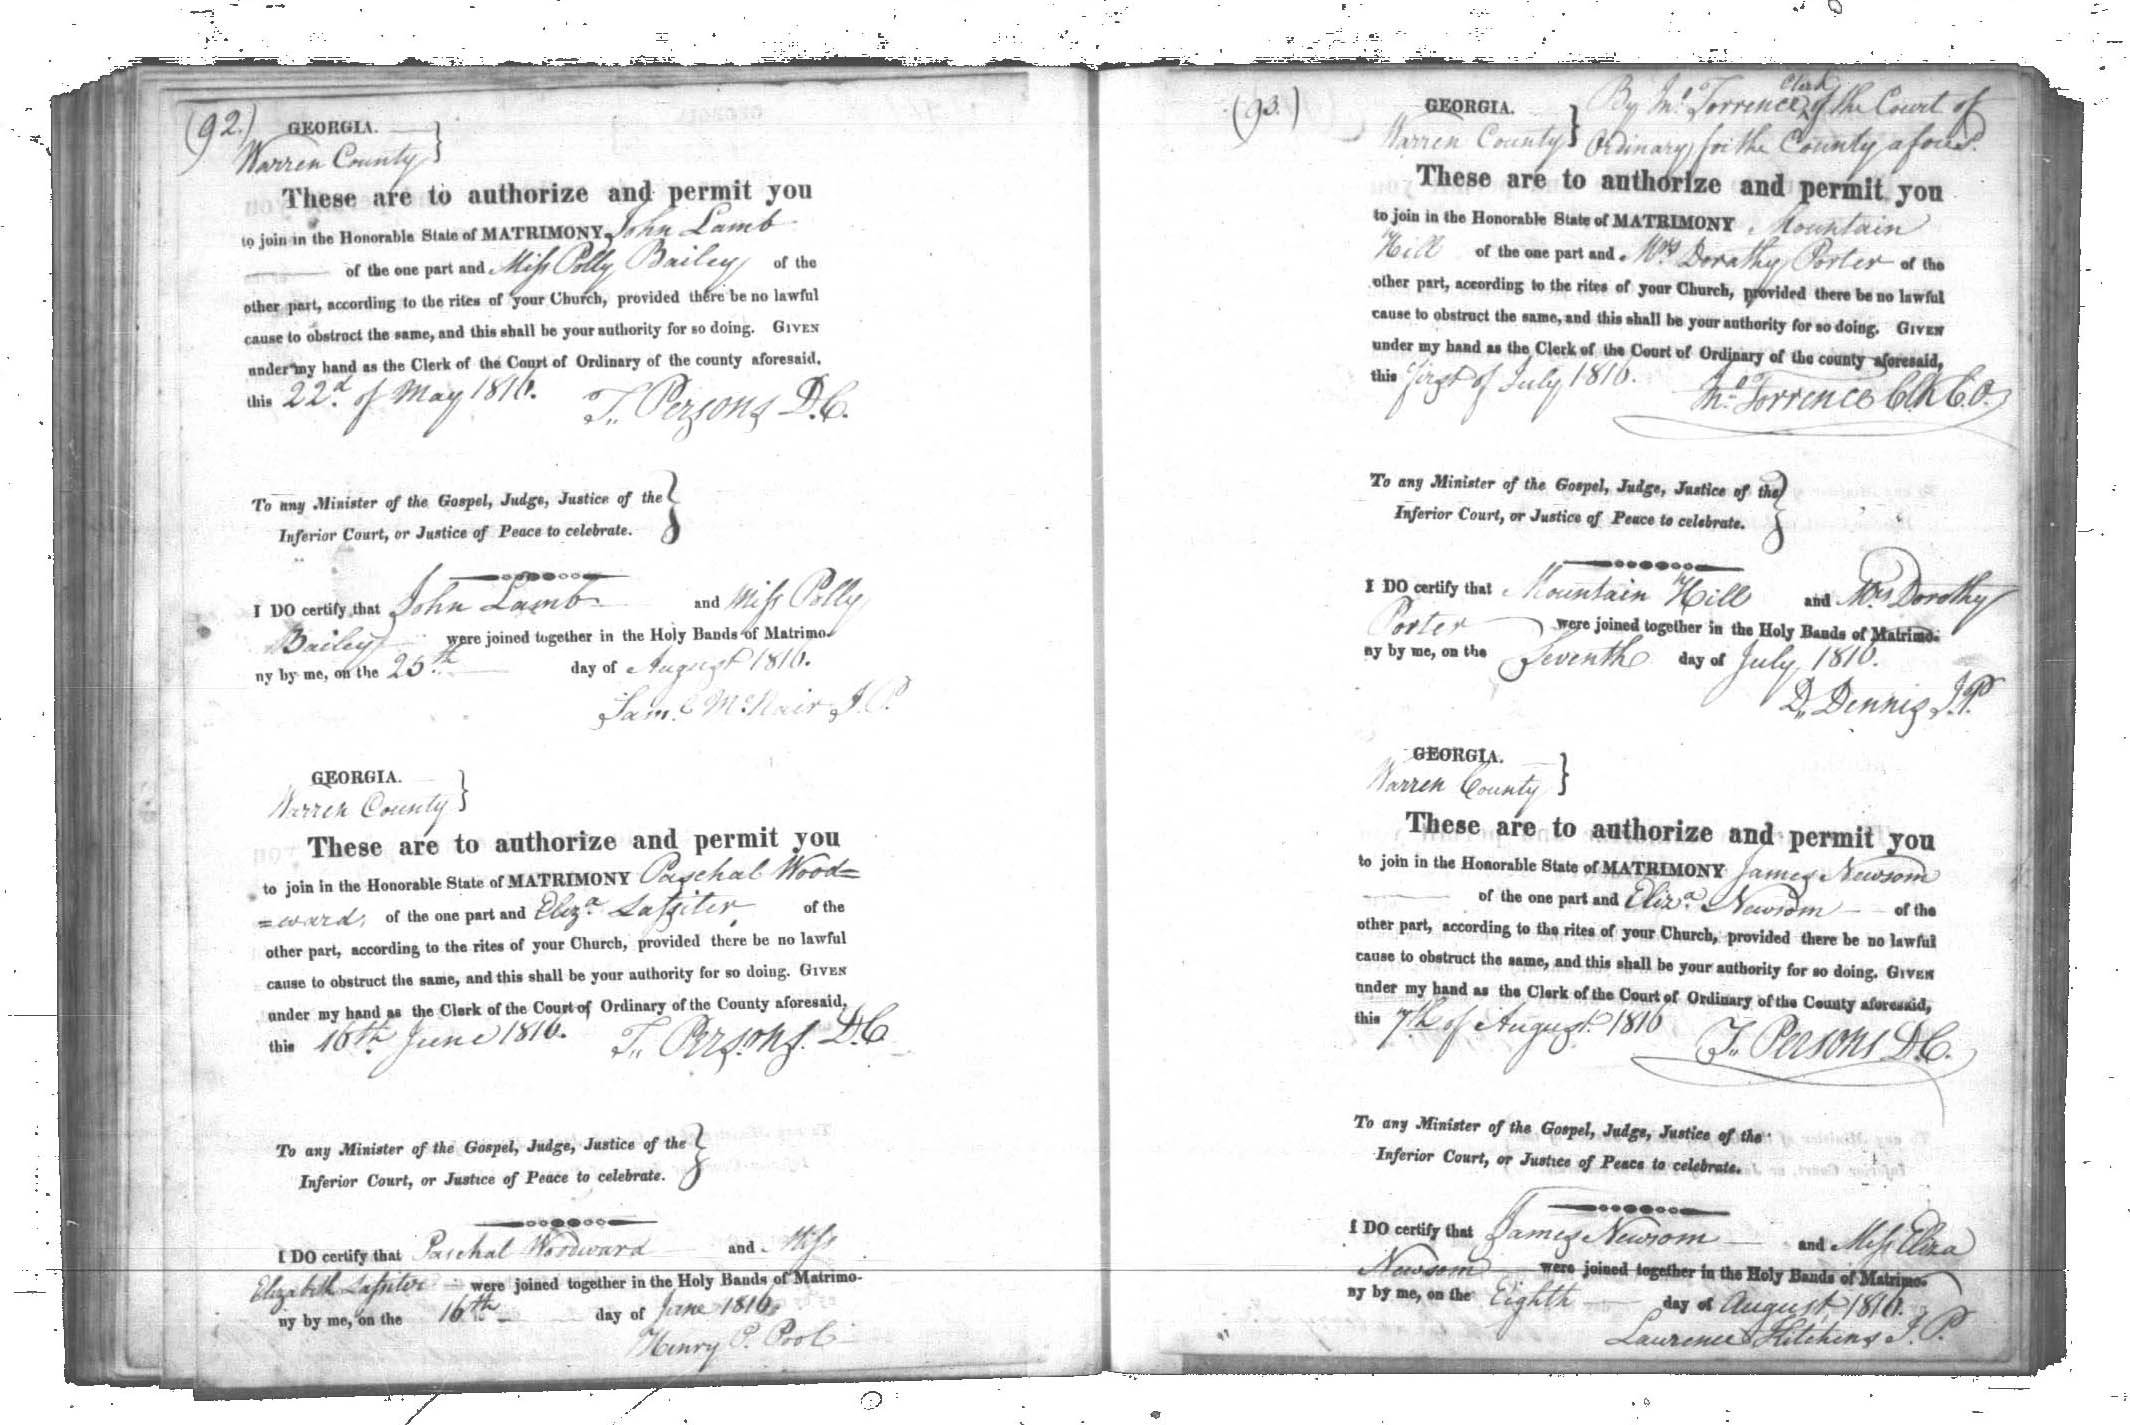 (92.)
GEORGIA. }
Warren County
These are to authorize and permit you
to join in the Honorable State of MATRIMONY John Lamb
of the one part and Miss Polly Bailey of the
other part, according to the rites of your Church, provided there be no lawful
cause to obstruct the same, and this shall be your authority for so doing. GIVEN
under my hand as the Clerk of the Court of Ordinary of the county aforesaid,
this 22d of May 1816. T. Persons D.C.
To any Minister of the Gospel, Judge, Justice of the }
Inferior Court, or Justice of Peace to celebrate.
I DO certify that John Lamb and Miss Polly
Bailey were joined together in the Holy Bands of Matrimo-
ny by me, on the 25th day of August 1816.
Saml. McNair J.P.
GEORGIA. }
Warren County
These are to authorize and permit you
to join in the Honorable State of MATRIMONY Paschal Wood=
=ward, of the one part and Eliza. Lassiter, of the
other part, according to the rites of your Church, provided there be no lawful
cause to obstruct the same, and this shall be your authority for so doing. GIVEN
under my hand as the Clerk of the Court of Ordinary of the County aforesaid,
this 16th June 1816. T. Persons. D.C
To any Minister of the Gospel, Judge, Justice of the }
Inferior Court, or Justice of Peace to celebrate.
I DO certify that Paschal Woodward and Miss
Elizabeth Lassiter were joined together in the Holy Bands of Matrimo-
ny by me, on the 16th day of June 1816.
Henry P. Pool
(93.)
GEORGIA. } By Jno. Torrence Clerk of the Court of
Warren County Ordinary for the County aforesd.
These are to authorize and permit you
to join in the Honorable State of MATRIMONY Mountain
Hill of the one part and Mrs Dorathy Porter of the
other part, according to the rites of your Church, provided there be no lawful
cause to obstruct the same, and this shall be your authority for so doing. GIVEN
under my hand as the Clerk of the Court of Ordinary of the county aforesaid,
this first of July 1816. Jno. Torrence Clk C.O.
To any Minister of the Gospel, Judge, Justice of the }
Inferior Court, or Justice of Peace to celebrate.
I DO certify that Mountain Hill and Mrs Dorothy
Porter were joined together in the Holy Bands of Matrimo-
ny by me, on the Seventh day of July 1816.
D. Dennis J.P.
GEORGIA. }
Warren County
These are to authorize and permit you
to join in the Honorable State of MATRIMONY James Newsom
of the one part and Eliza. Newsom of the
other part, according to the rites of your Church, provided there be no lawful
cause to obstruct the same, and this shall be your authority for so doing. GIVEN
under my hand as the Clerk of the Court of Ordinary of the County aforesaid,
this 7th of August 1816 T. Persons D.C.
To any Minister of the Gospel, Judge, Justice of the
Inferior Court, or Justice of Peace to celebrate.
I DO certify that James Newsom and Miss Eliza
Newsom were joined together in the Holy Bands of Matrimo-
ny by me, on the Eighth day of August, 1816.
Laurence Kitchens J.P.